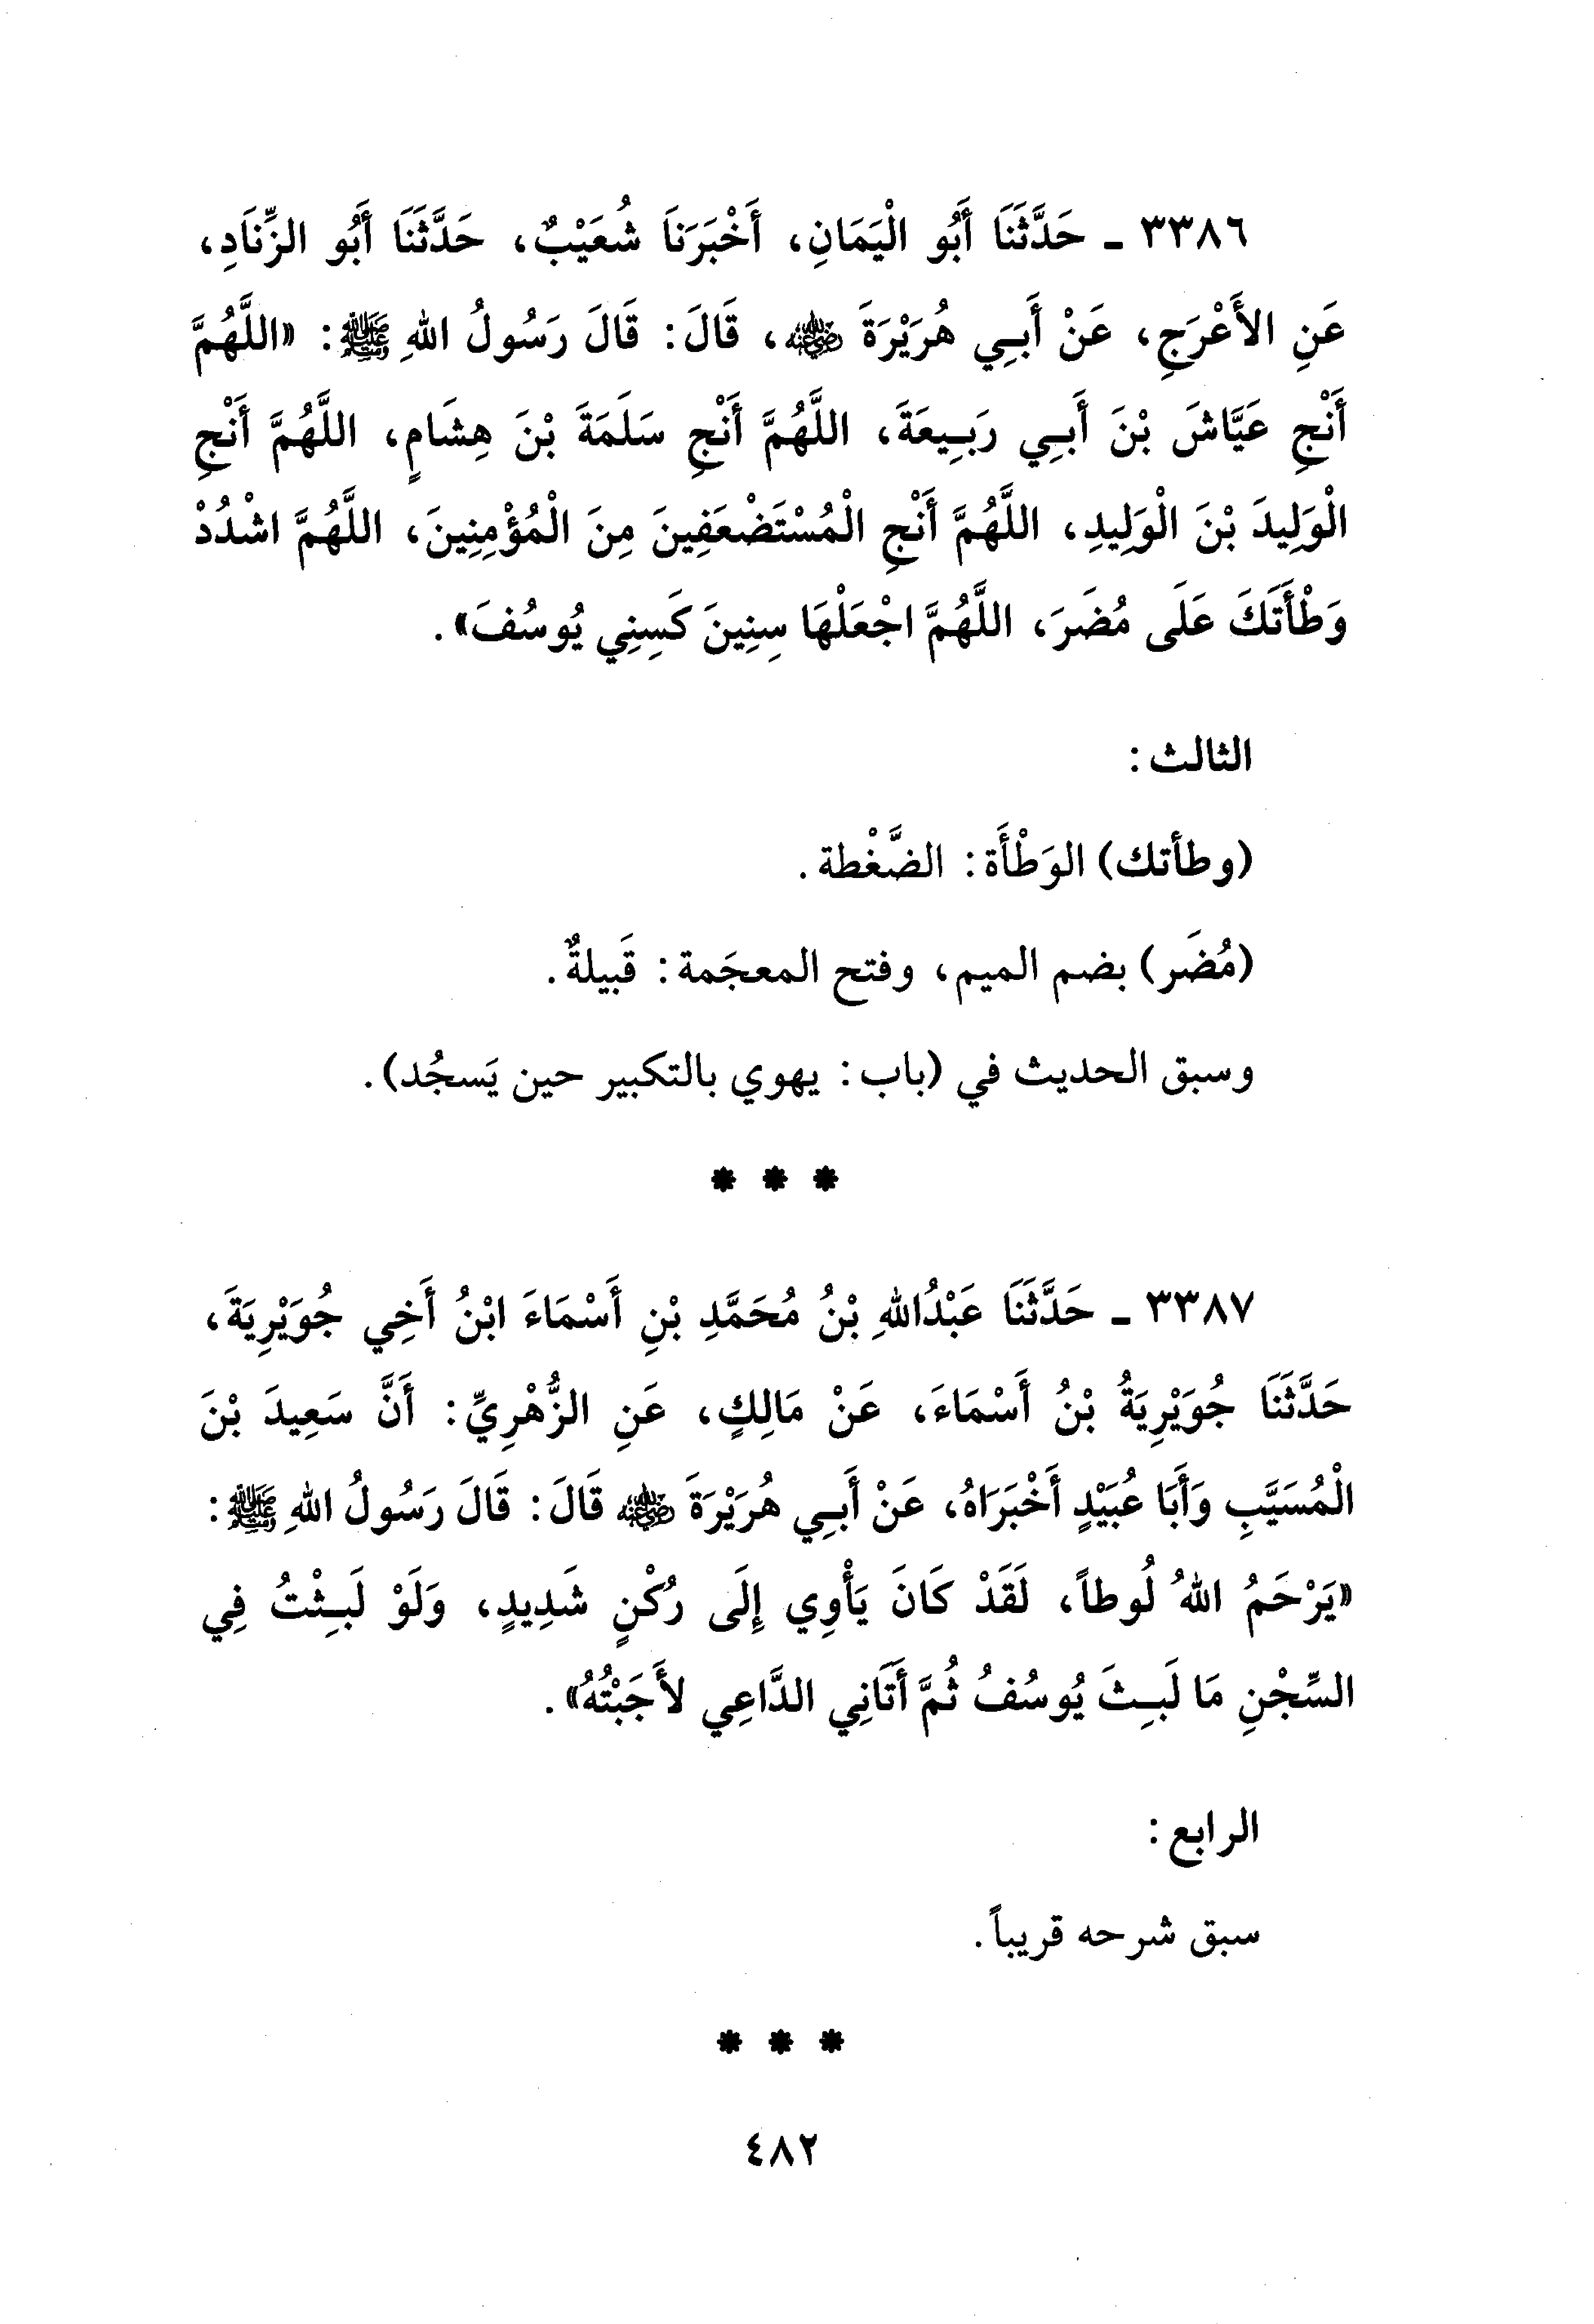 ٣٣٨٦ ـ حَدَّثَنَا أَبُو الْيَمَانِ، أَخْبَرَنَا شُعَيْبٌ، حَدَّثَنَا أَبُو الزِّنَادِ،
عَنِ الأَعْرَجِ، عَنْ أَبِي هُرَيْرَةَ رضي الله عنه، قَالَ: قَالَ رَسُولُ اللهِ ﷺ: «اللَّهُمَّ
أَنْجِ عَيَّاشَ بْنَ أَبِي رَبِيعَةَ، اللَّهُمَّ أَنْجِ سَلَمَةَ بْنَ هِشَامٍ، اللَّهُمَّ أَنْجِ
الْوَلِيدَ بْنَ الْوَلِيدِ، اللَّهُمَّ أَنْجِ الْمُسْتَضْعَفِينَ مِنَ الْمُؤْمِنِينَ، اللَّهُمَّ اشْدُدْ
وَطْأَتَكَ عَلَى مُضَرَ، اللَّهُمَّ اجْعَلْهَا سِنِينَ كَسِنِي يُوسُفَ».
الثالث:
(وطأتك) الوَطْأَة: الضَّغْطة.
(مُضَر) بضم الميم، وفتح المعجَمة: قَبيلةٌ.
وسبق الحديث في (باب: يهوي بالتكبير حين يَسجُد).
* * *
٣٣٨٧ ـ حَدَّثَنَا عَبْدُاللهِ بْنُ مُحَمَّدِ بْنِ أَسْمَاءَ ابْنُ أَخِي جُوَيْرِيَةَ،
حَدَّثَنَا جُوَيْرِيَةُ بْنُ أَسْمَاءَ، عَنْ مَالِكٍ، عَنِ الزُّهْرِيِّ: أَنَّ سَعِيدَ بْنَ
الْمُسَيَّبِ وَأَبَا عُبَيْدٍ أَخْبَرَاهُ، عَنْ أَبِي هُرَيْرَةَ رضي الله عنه قَالَ: قَالَ رَسُولُ اللهِ ﷺ:
«يَرْحَمُ اللهُ لُوطاً، لَقَدْ كَانَ يَأْوِي إِلَى رُكْنٍ شَدِيدٍ، وَلَوْ لَبِثْتُ فِي
السِّجْنِ مَا لَبِثَ يُوسُفُ ثُمَّ أَتَانِي الدَّاعِي لأَجَبْتُهُ».
الرابع:
سبق شرحه قريباً.
* * *
٤٨٢